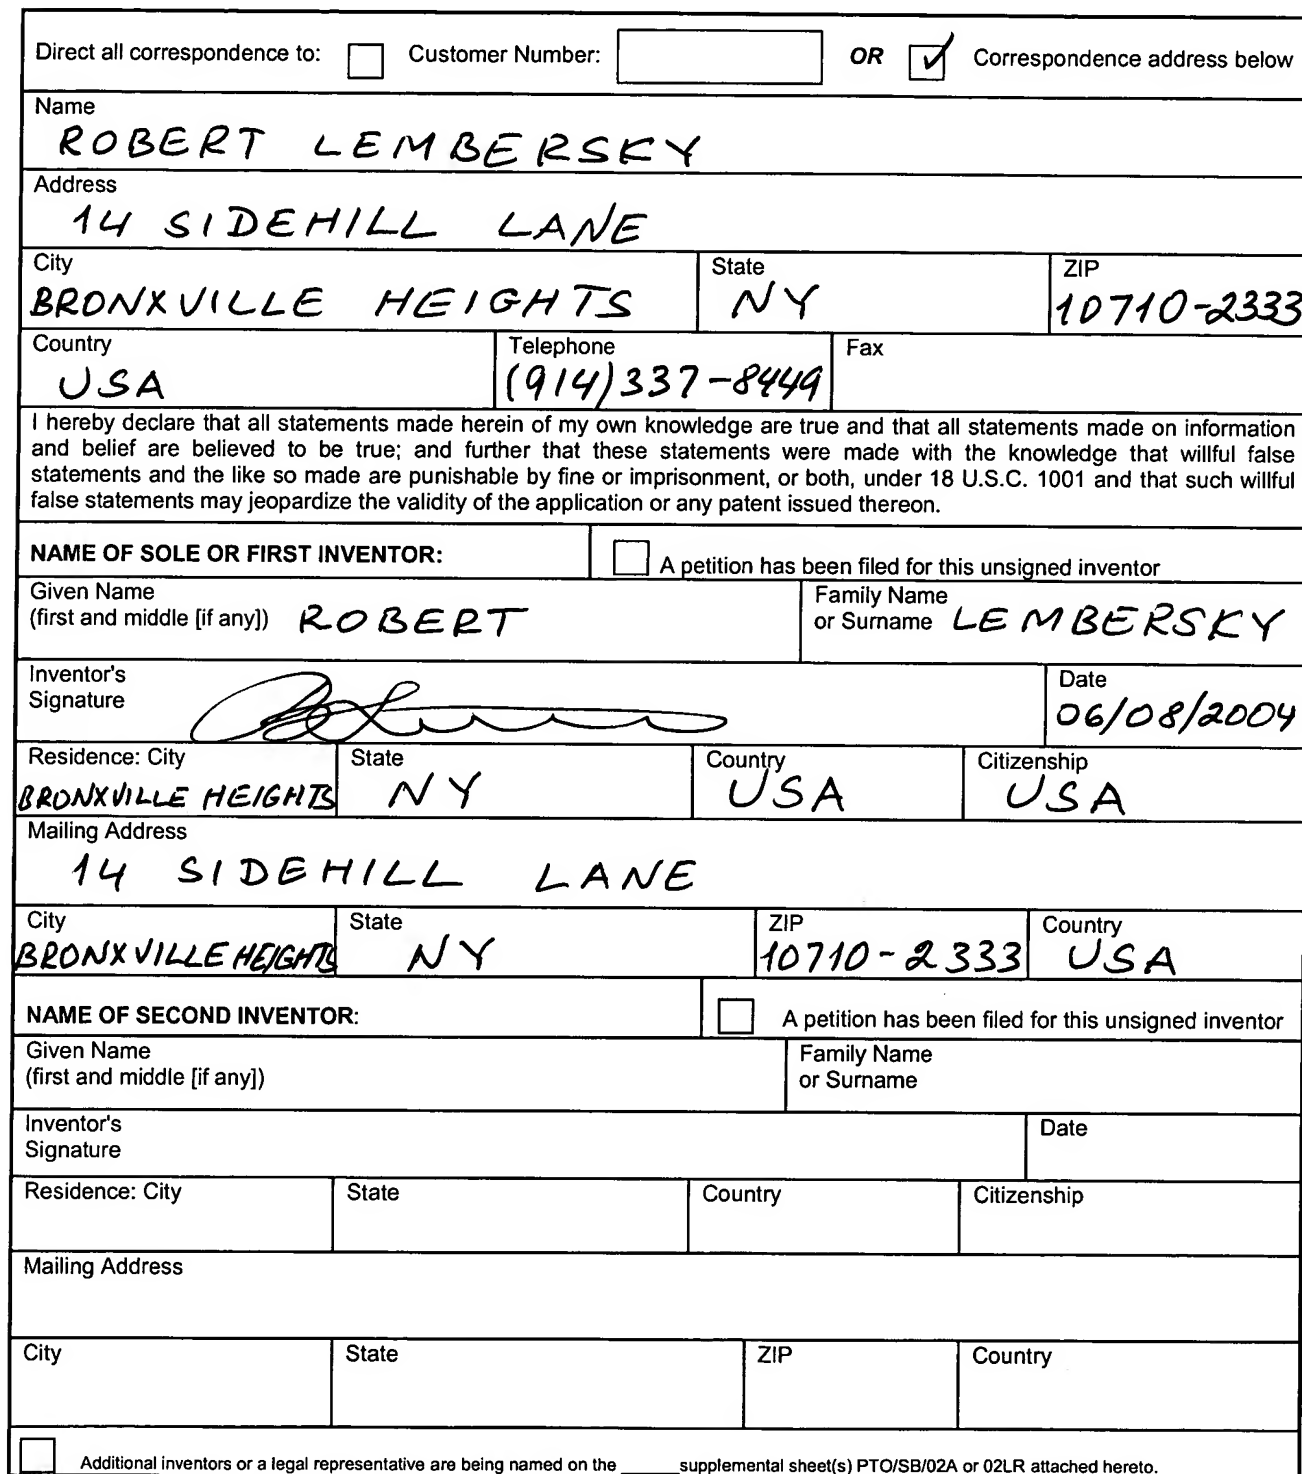 Direct all correspondence to: Customer Number: OR Correspondence address below
Name
ROBERT LEMBERSKY
Address
14 SIDEHILL LANE
City State ZIP
BRONXVILLE HEIGHTS NY 10710-2333
Country Telephone Fax
USA (914)337-8449
I hereby declare that all statements made herein of my own knowledge are true and that all statements made on information
and belief are believed to be true; and further that these statements were made with the knowledge that willful false
statements and the like so made are punishable by fine or imprisonment, or both, under 18 U.S.C. 1001 and that such willful
false statements may jeopardize the validity of the application or any patent issued thereon.
NAME OF SOLE OR FIRST INVENTOR: A petition has been filed for this unsigned inventor
Given Name Family Name
(first and middle [if any]) ROBERT or Surname LEMBERSKY
Inventor's Date
Signature 06/08/2004
Residence: City State Country Citizenship
BRONXVILLE HEIGHTS NY USA USA
Mailing Address
14 SIDEHILL LANE
City State ZIP Country
BRONXVILLE HEIGHTS NY 10710-2333 USA
NAME OF SECOND INVENTOR: A petition has been filed for this unsigned inventor
Given Name Family Name
(first and middle [if any]) or Surname
Inventor's Date
Signature
Residence: City State Country Citizenship
Mailing Address
City State ZIP Country
Additional inventors or a legal representative are being named on the _____supplemental sheet(s) PTO/SB/02A or 02LR attached hereto.